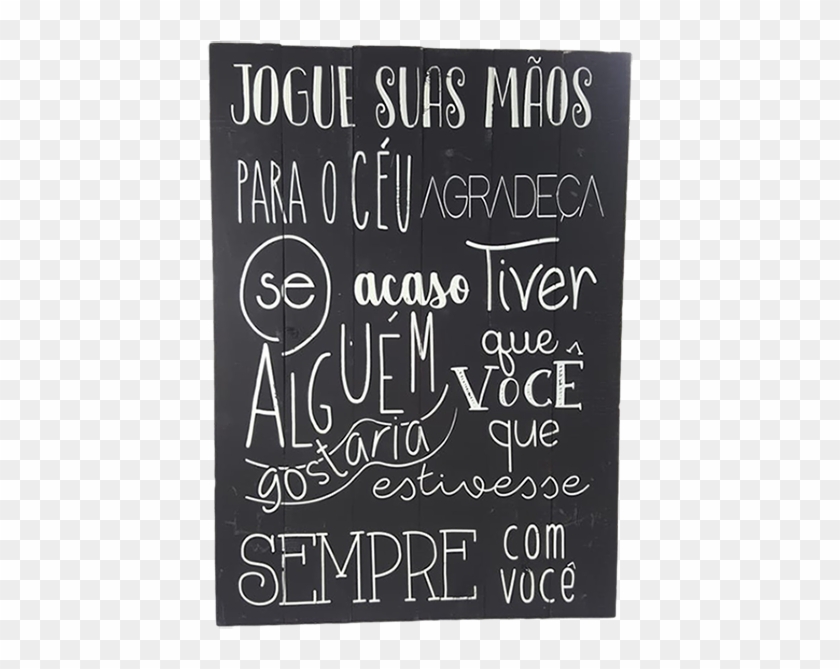 JOGUE SUAS MÃOS
PARA O CÉU AGRADEÇA
se acaso Tiver
ALGUÉM que VOCÊ
gostaria que
estivesse
SEMPRE com
você